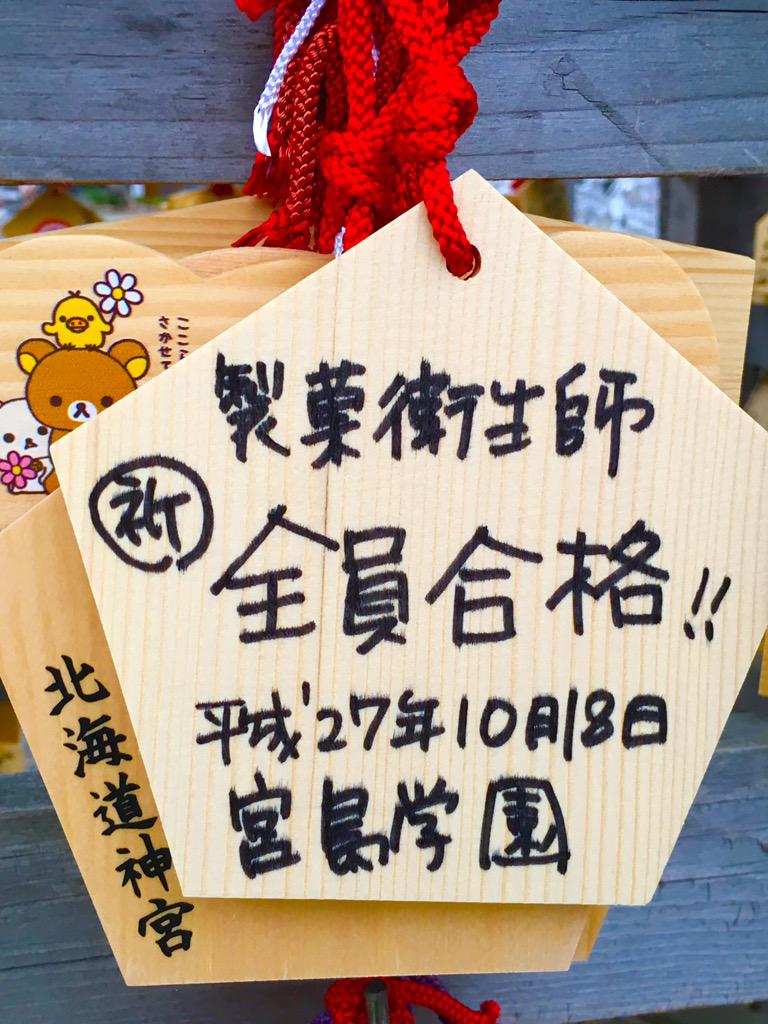 製菓衛生師
祈
全員合格!!
平成'27年10月18日
宮島学園
北海道神宮
ここ
さかせて